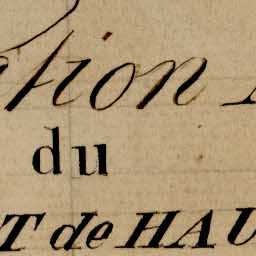 ation
du
T de HAU